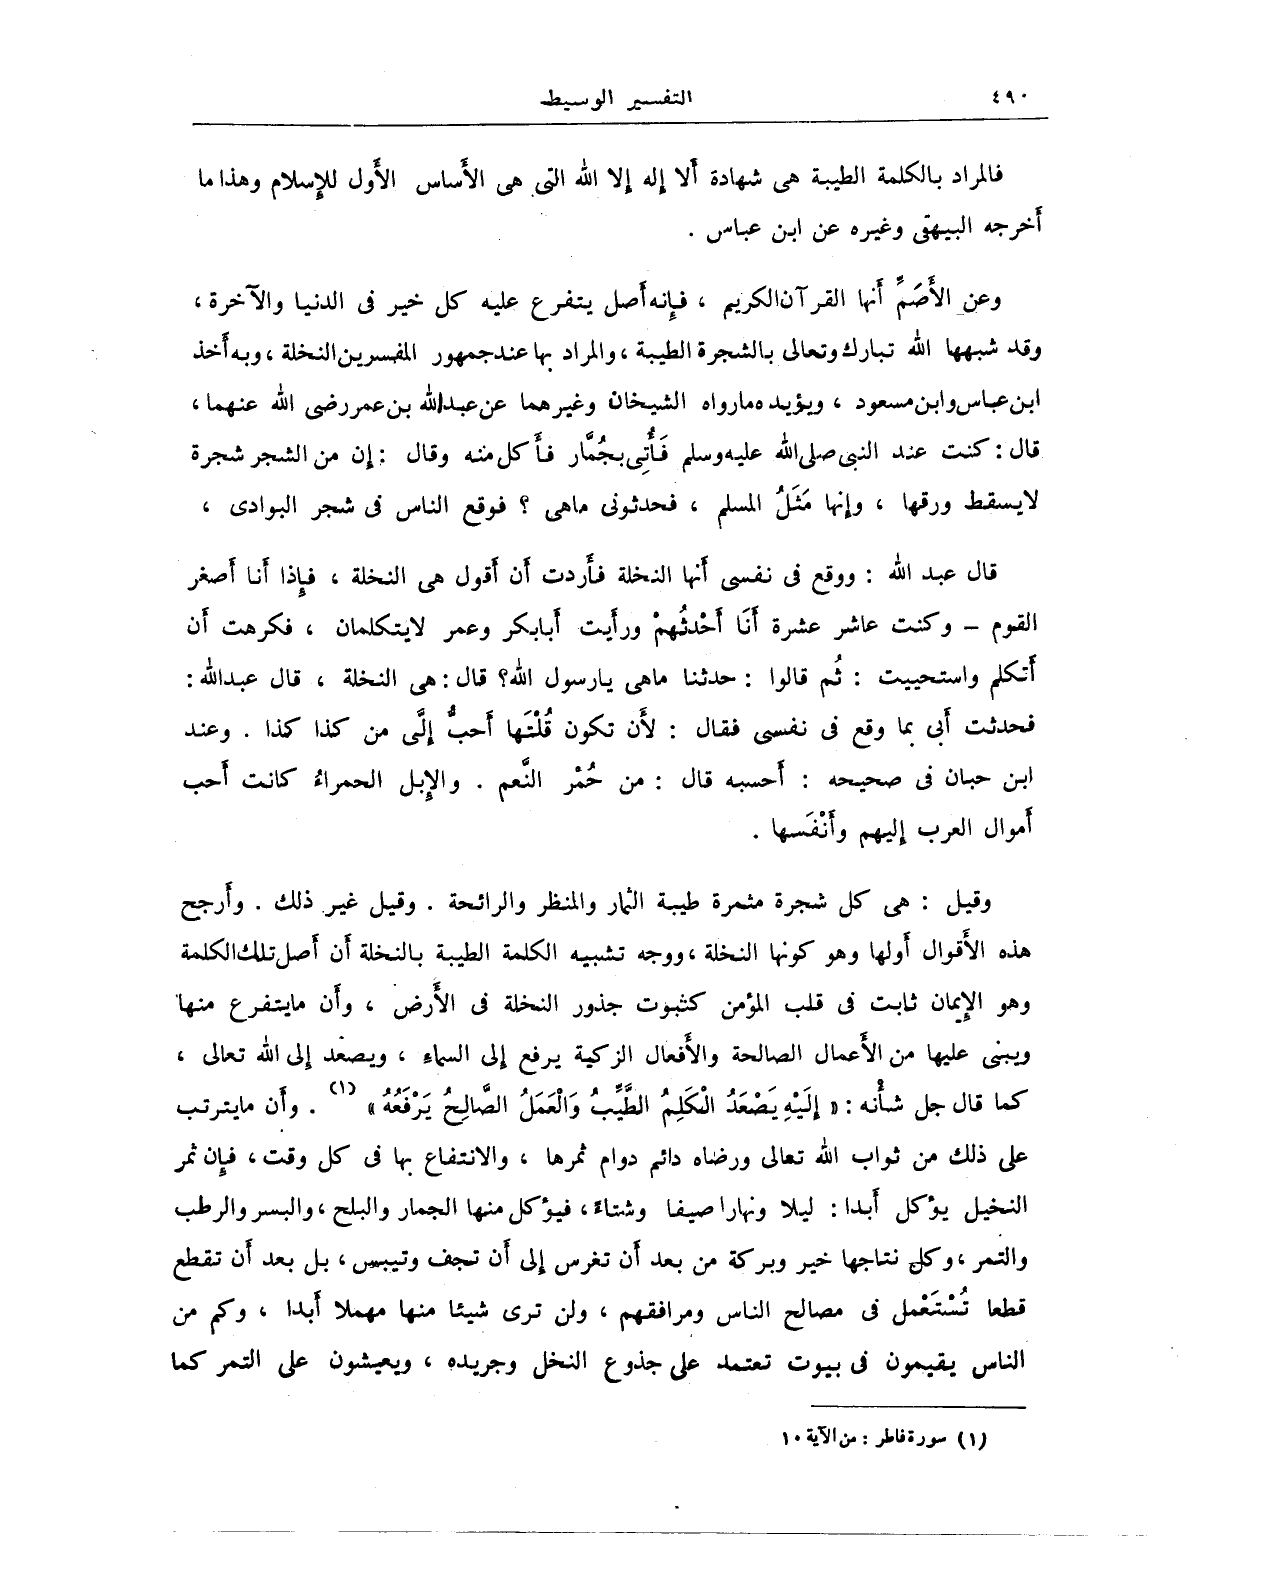 ٤٩٠
التفسير الوسيط
فالمراد بالكلمة الطيبة هى شهادة ألا إله إلا الله التى هى الأساس الأول للإسلام وهذا ما
أخرجه البيهقى وغيره عن ابن عباس .
وعن الأَصَمِّ أنها القرآن الكريم ، فإنه أصل يتفرع عليه كل خير فى الدنيا والآخرة ،
وقد شبهها الله تبارك وتعالى بالشجرة الطيبة ، والمراد بها عند جمهور المفسرين النخلة ، وبه أخذ
ابن عباس وابن مسعود ، ويؤيده مارواه الشيخان وغيرهما عن عبدالله بن عمر رضى الله عنهما ،
قال : كنت عند النبى صلى الله عليه وسلم فَأُتِى بجُمَّار فأكل منه وقال : إن من الشجر شجرة
لايسقط ورقها ، وإنها مَثَلُ المسلم ، فحدثونى ماهى ؟ فوقع الناس فى شجر البوادى ،
قال عبد الله : ووقع فى نفسى أنها النخلة فأردت أن أقول هى النخلة ، فإذا أنا أصغر
القوم – وكنت عاشر عشرة أَنَا أَحْدثُهمْ ورأيت أبابكر وعمر لايتكلمان ، فكرهت أن
أتكلم واستحييت : ثُم قالوا : حدثنا ماهى يارسول الله؟ قال : هى النخلة ، قال عبدالله :
فحدثت أبى بما وقع فى نفسى فقال : لأن تكون قُلْتَها أحبُّ إلَّى من كذا كذا . وعند
ابن حبان فى صحيحه : أحسبه قال : من حُمْر النَّعم . والإبل الحمراءُ كانت أحب
أموال العرب إليهم وأَنْفَسها .
وقيل : هى كل شجرة مثمرة طيبة الثمار والمنظر والرائحة . وقيل غير ذلك . وأرجح
هذه الأقوال أولها وهو كونها النخلة ، ووجه تشبيه الكلمة الطيبة بالنخلة أن أصل تلك الكلمة
وهو الإيمان ثابت فى قلب المؤمن كثبوت جذور النخلة فى الأرض ، وأن مايتفرع منها
ويبنى عليها من الأعمال الصالحة والأفعال الزكية يرفع إلى السماء ، ويصعد إلى الله تعالى ،
كما قال جل شأْنه : « إِلَيْهِ يَصْعَدُ الْكَلِمُ الطَّيِّبُ وَالْعَمَلُ الصَّالِحُ يَرْفَعُهُ » (١) . وأن مايترتب
على ذلك من ثواب الله تعالى ورضاه دائم دوام ثمرها ، والانتفاع بها فى كل وقت ، فإن ثمر
النخيل يؤكل أبدا : ليلا ونهارا صيفا وشتاءً ، فيؤكل منها الجمار والبلح ، والبسر والرطب
والتمر ، وكل نتاجها خير وبركة من بعد أن تغرس إلى أن تجف وتيبس ، بل بعد أن تقطع
قطعا تُسْتَعْمل فى مصالح الناس ومرافقهم ، ولن ترى شيئا منها مهملا أبدا ، وكم من
الناس يقيمون فى بيوت تعتمد على جذوع النخل وجريده ، ويعيشون على التمر كما
(١) سورة فاطر : من الآية ١٠